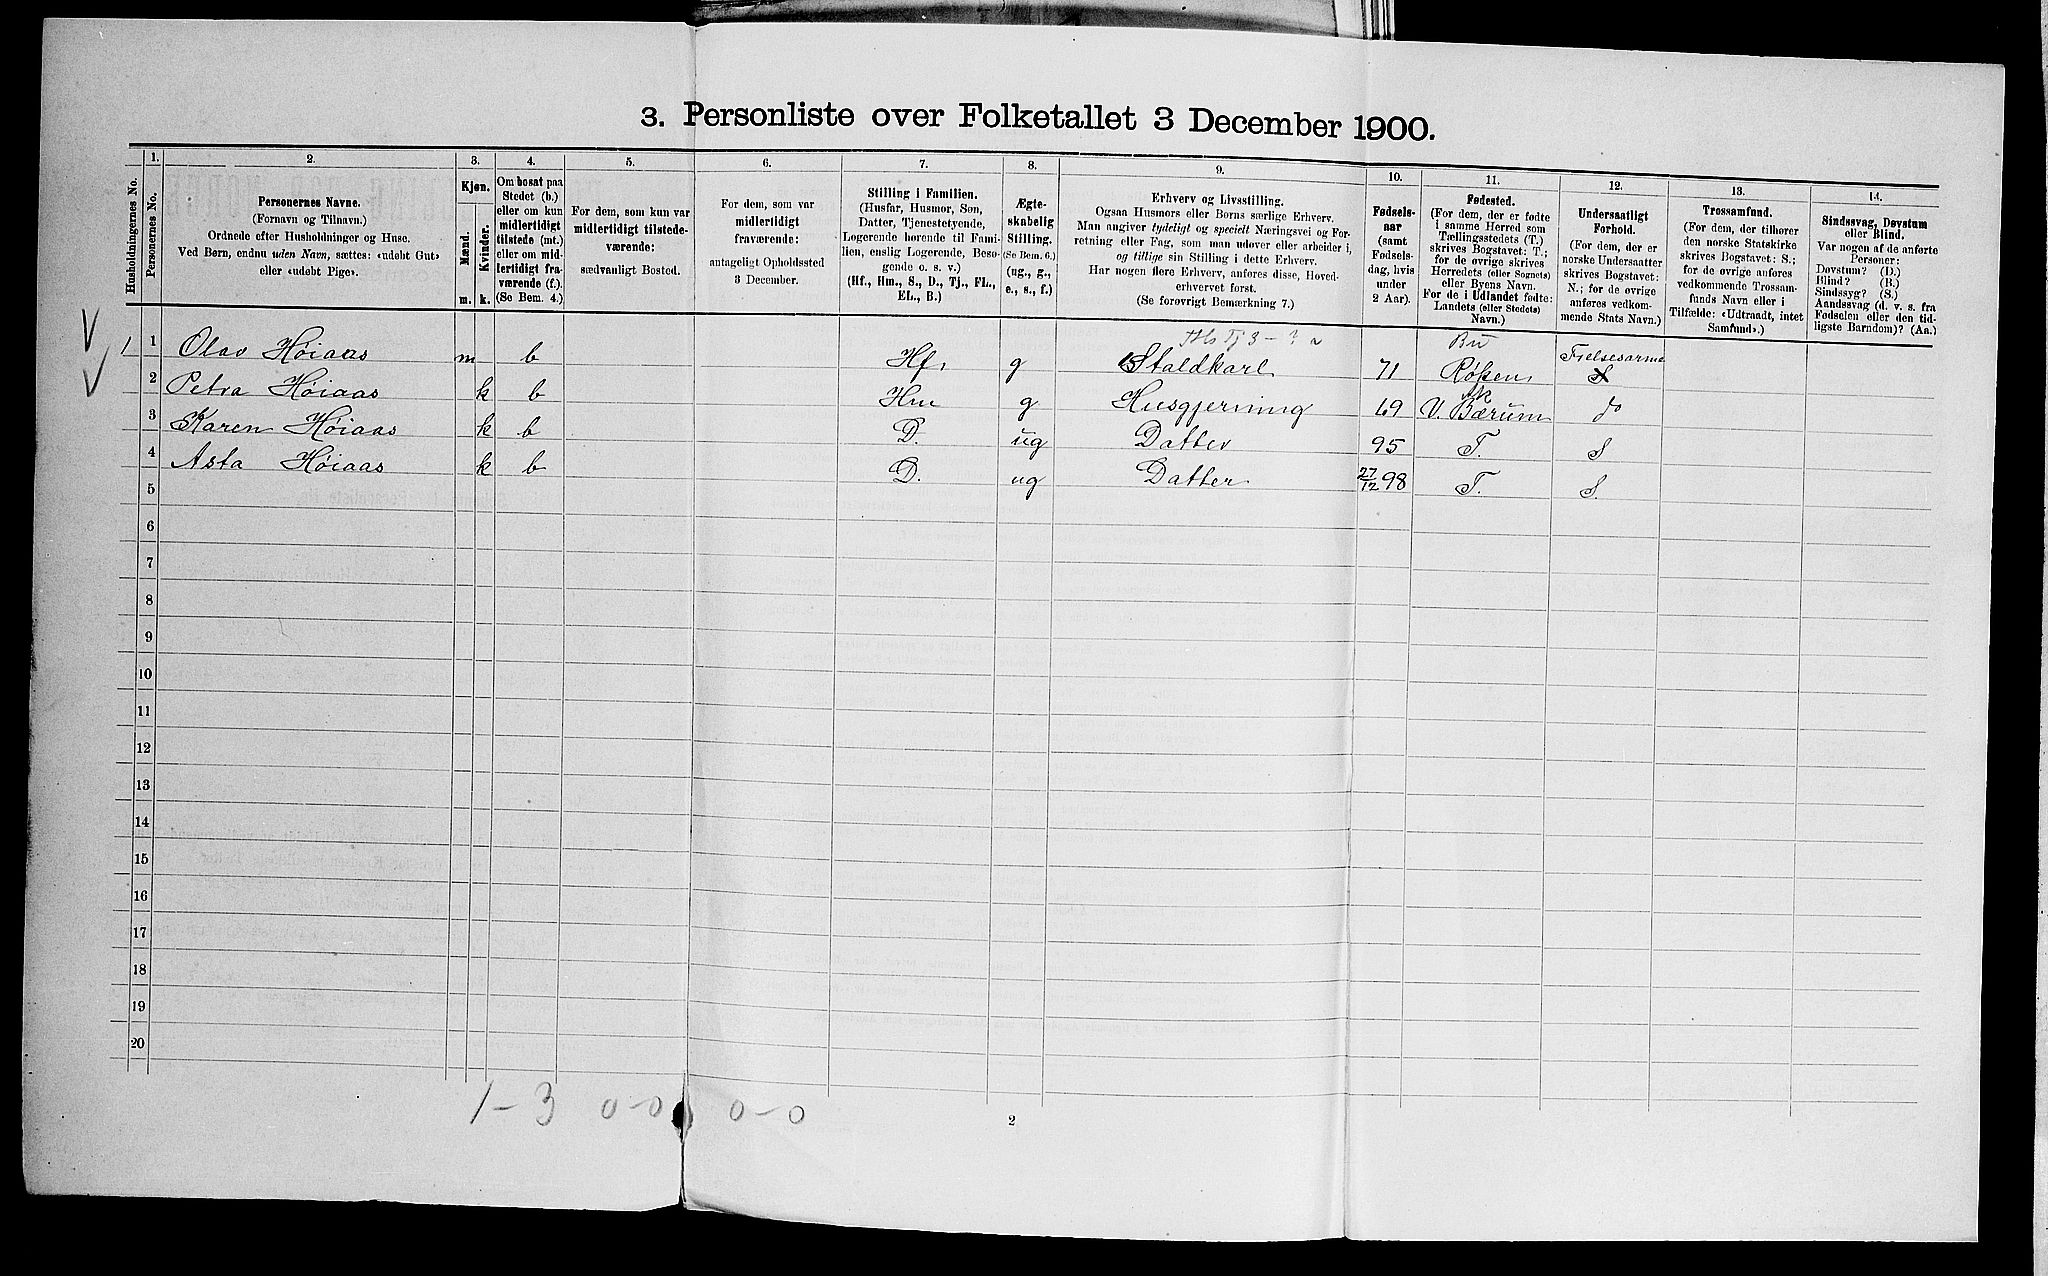 3. Personliste over Folketallet 3 December 1900.
Husholdningernes No.
1.
Personernes No.
2.
Personernes Navne.
(Fornavn og Tilnavn.)
Ordnede efter Husholdninger og Huse.
Ved Børn, endnu uden Navn, sættes: «udøbt Gut»
eller «udøbt Pige».
3.
Kjøn.
Mænd.
Kvinder.
m. k.
4.
Om bosat paa
Stedet (b.)
eller om kun
midlertidigt
tilstede (mt.)
eller om mid-
lertidigt fra-
værende (f.)
(Se Bem. 4.)
5.
For dem, som kun var
midlertidigt tilstede-
værende:
sædvanligt Bosted.
6.
For dem, som var
midlertidigt
fraværende:
antageligt Opholdssted
3 December.
7.
Stilling i Familien.
(Husfar, Husmor, Søn,
Datter, Tjenestetyende,
Logerende hørende til Fami-
lien, enslig Logerende, Besø-
gende o. s. v.)
(Hf., Hm., S., D., Tj., FL.,
EL., B.)
8.
Ægte-
skabelig
Stilling.
(Se Bem. 6.)
(ug., g.,
e., s., f.)
9.
Erhverv og Livsstilling.
Ogsaa Husmors eller Børns særlige Erhverv.
Man angiver tydeligt og specielt Næringsvei og For-
retning eller Fag, som man udover eller arbeider i,
og tillige sin Stilling i dette Erhverv.
Har nogen flere Erhverv, anføres disse, Hoved-
erhvervet først.
(Se forøvrigt Bemærkning 7.)
10.
Fødsels-
aar
(samt
Fødsels-
dag, hvis
under
2 Aar).
11.
Fødested.
(For dem, der er fødte
i samme Herred som
Tællingsstedets (T.)
skrives Bogstavet: T.;
for de øvrige skrives
Herredets (eller Sognets)
eller Byens Navn.
For de i Udlandet fødte:
Landets (eller Stedets)
Navn.)
12.
Undersaatligt
Forhold.
(For dem, der er
norske Undersaatter
skrives Bogstavet:
N.; for de øvrige
anføres vedkom-
mende Stats Navn.)
13.
Trossamfund.
(For dem, der tilhører
den norske Statskirke
skrives Bogstavet: S.;
for de øvrige anføres
vedkommende Trossam-
funds Navn eller i
Tilfælde: «Udtraadt, intet
Samfund».)
14.
Sindssvag, Døvstum
eller Blind.
Var nogen af de anførte
Personer:
Døvstum? (D.)
Blind? (B.)
Sindssyg? (S.)
Aandssvag (d. v. s. fra
Fødselen eller den tid-
ligste Barndom)? (Aa.)
Bu
1 1 Olav Høiaas m b Hf. g Staldkarl 71 Røken Frelsesarme S
2 Petra Høiaas k b Hm g Husgjerning 69 V. Bærum do
3 Karen Høiaas k b D. ug Datter 95 T. S
4 Asta Høiaas k b D. ug Datter 27/12 98 T. S.
5
6
7
8
9
10
11
12
13
14
15
16
17
18
19
20
1-3 0-0 0-0
2